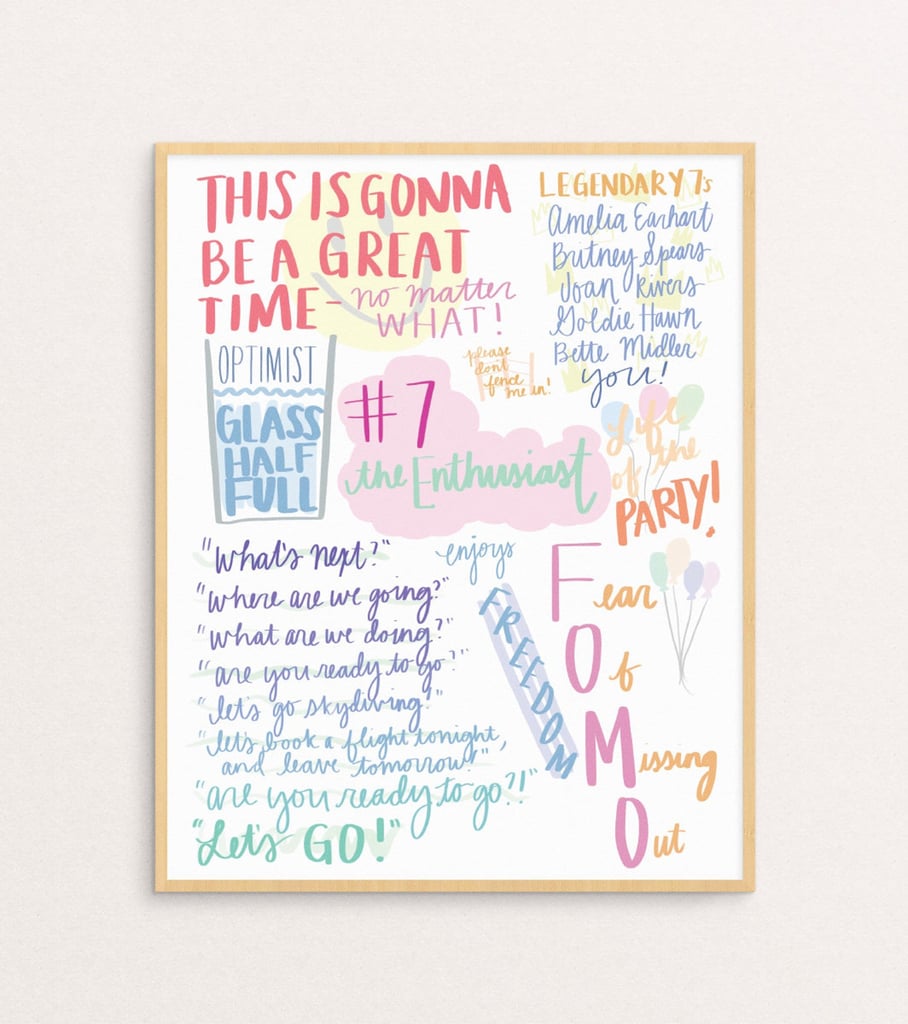 THIS IS GONNA
BE A GREAT
TIME - no matter
WHAT!
LEGENDARY 7's
Amelia Earhart
Britney Spears
Joan Rivers
Goldie Hawn
Bette Midler
you!
OPTIMIST
GLASS
HALF
FULL
please
don't
fence
me in!
#7
the Enthusiast
Life
of the
PARTY!
"What's next?"
"where are we going?"
"what are we doing?"
"are you ready to go?"
"let's go skydiving!"
"let's book a flight tonight,
and leave tomorrow!"
"are you ready to go?!"
"Let's GO!"
enjoys
FREEDOM
Fear
Of
Missing
Out